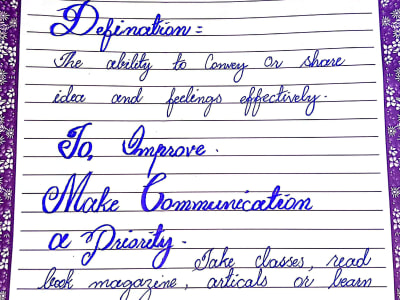 Defination:
The ability to Convey or share
idea and feelings effectively.
To, Improve.
Make Communication
a Priority.
Take classes, read
book magazine, articals or learn